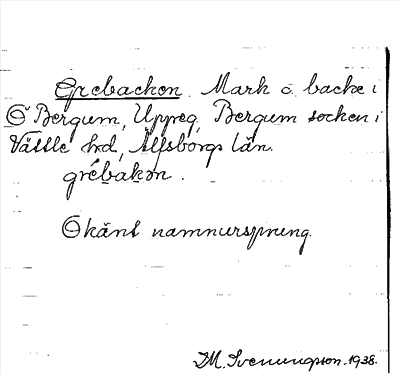 Grebacken. Mark o. backe i
Ö Bergum, Uppreg. Bergum socken i
Vättle hd, Älfsborgs län.
grébàkọn.
Okänt namnursprung.
M. Svenungsson. 1938.